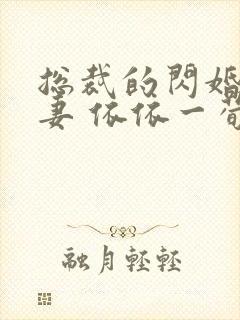 总裁的閃婚
妻 依依一荀
融月輕輕